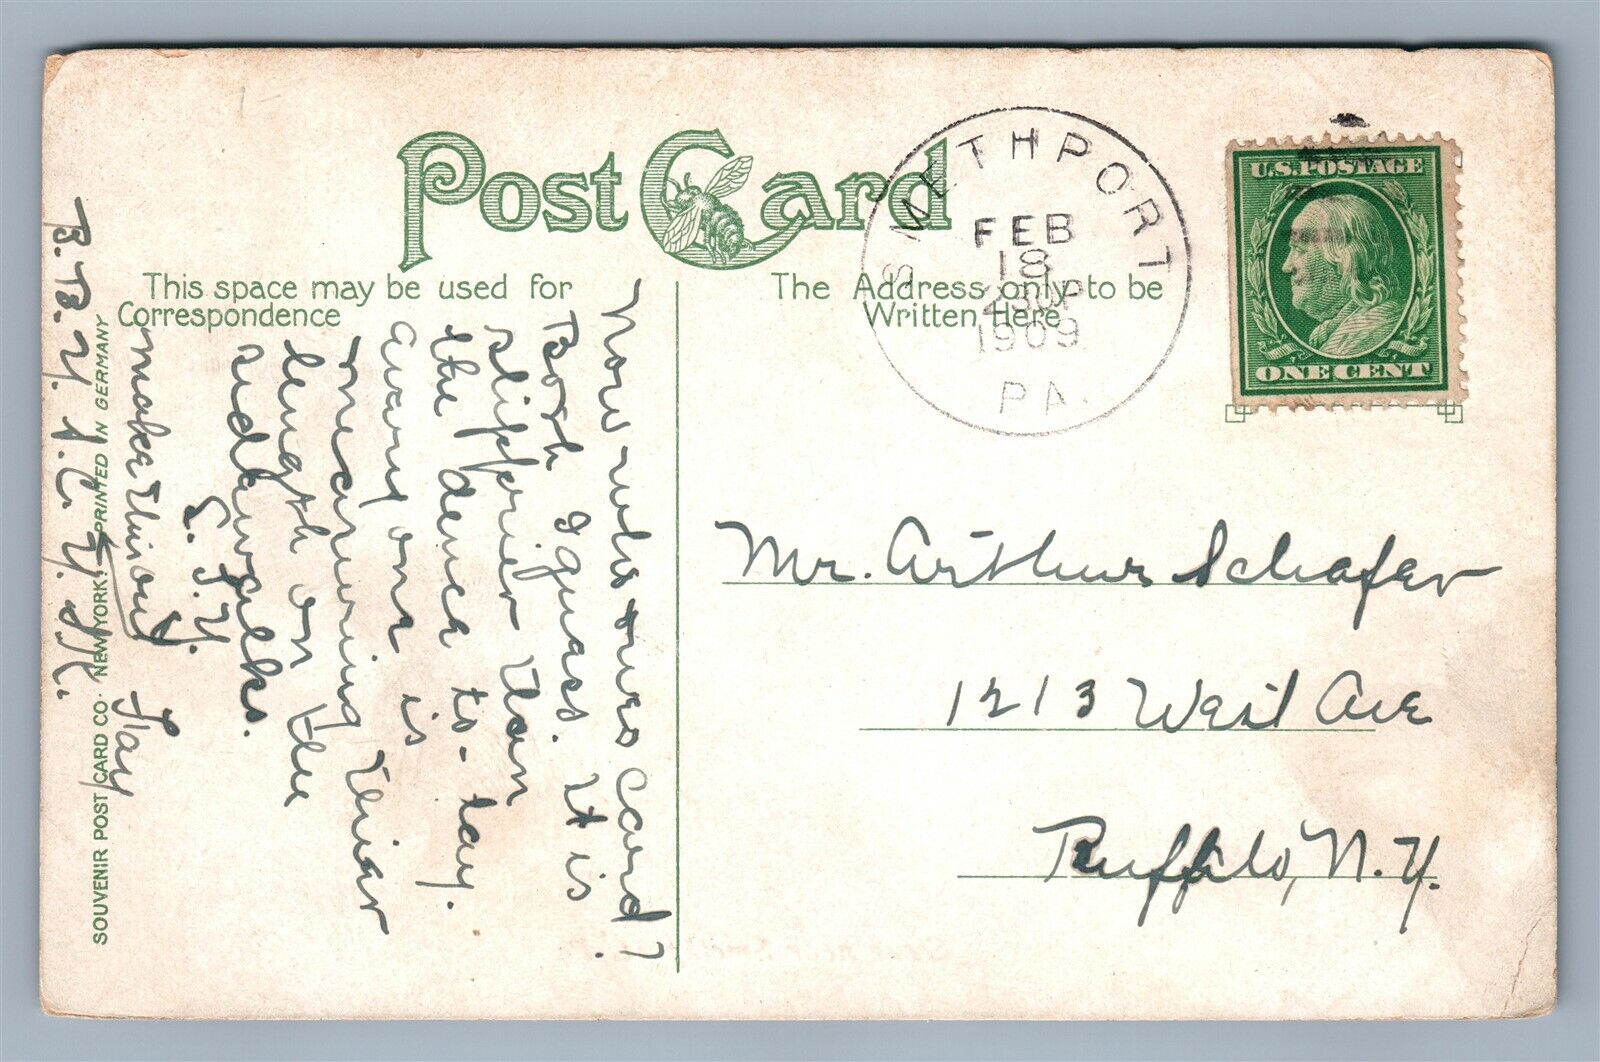 Post Card
This space may be used for
Correspondence
The Address only to be
Written Here
SMETHPORT
FEB
18
1909
PA.
U.S. POSTAGE
ONE CENT
Mr. Arthur Schafer
1213 West Ave
Buffalo, N.Y.
Now who owes card?
Both I guess. It is
slipperier than
the dence to-day.
Every one is
measuring thier
length on the
sidewalks.
L. T. Y.
make this out
Fay
B. B. Y. I. C. Y. M. R.
SOUVENIR POST CARD CO. NEW YORK. PRINTED IN GERMANY